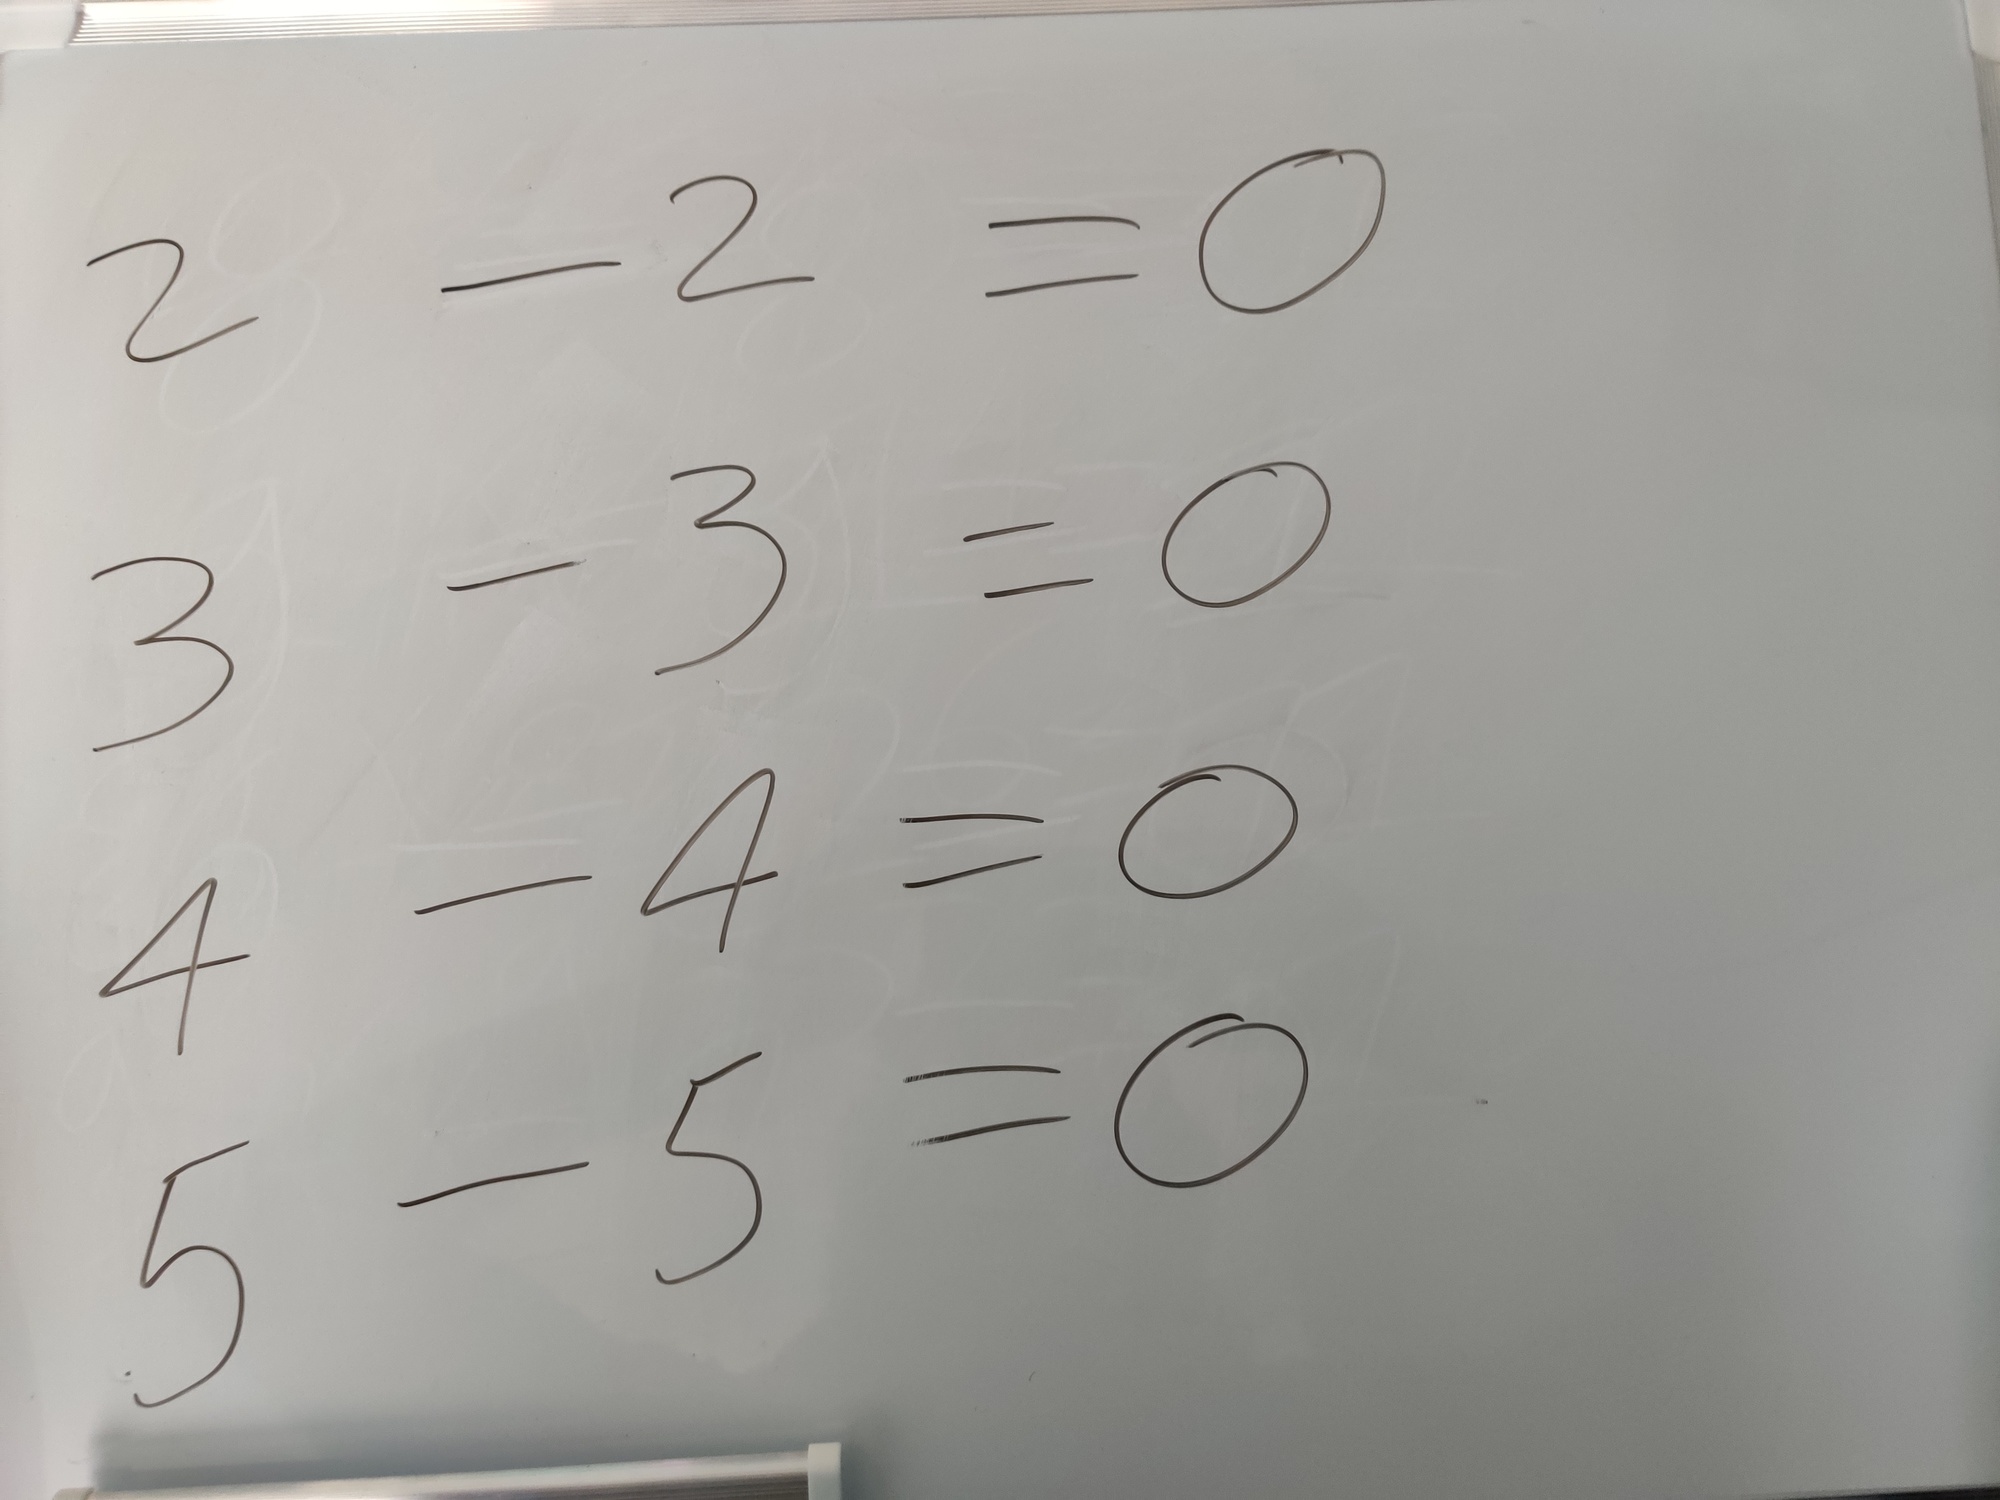 2 - 2 = 0
3 - 3 = 0
4 - 4 = 0
5 - 5 = 0